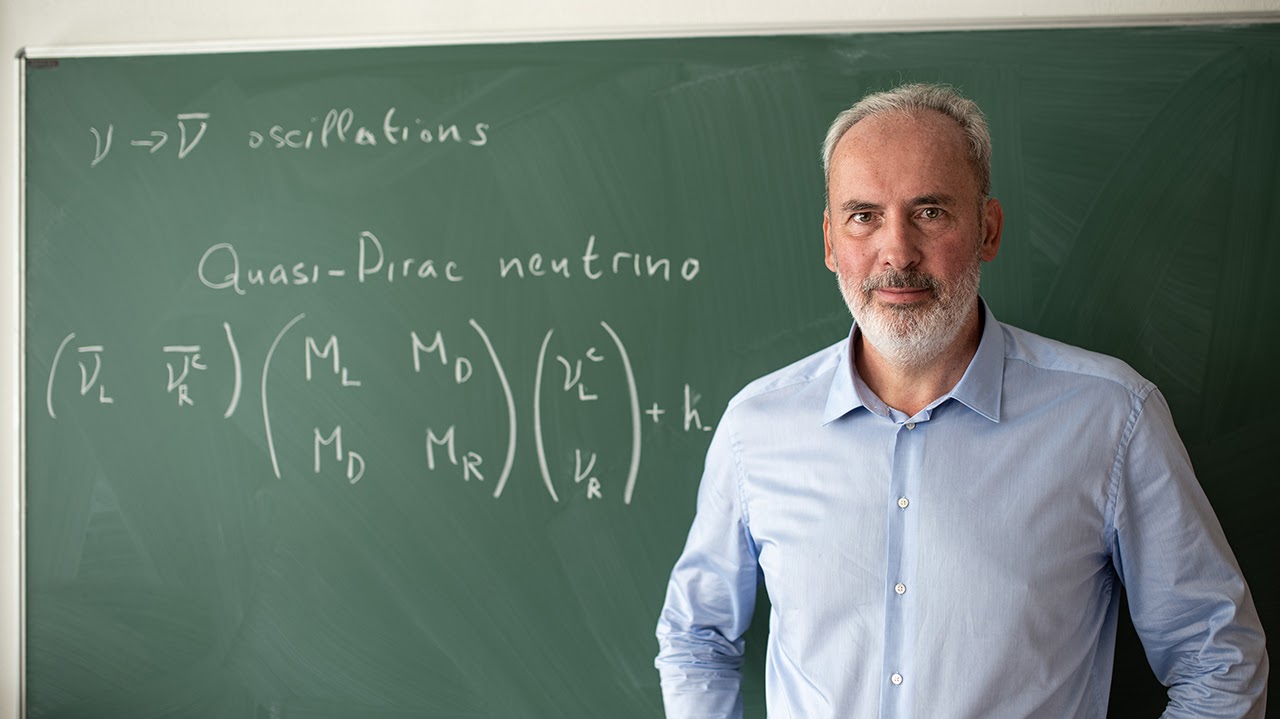 ν → ν̅ oscillations
Quasi-Dirac neutrino
(ν̅_L ν̅_R^c) (M_L M_D; M_D M_R) (ν_L^c; ν_R) + h.